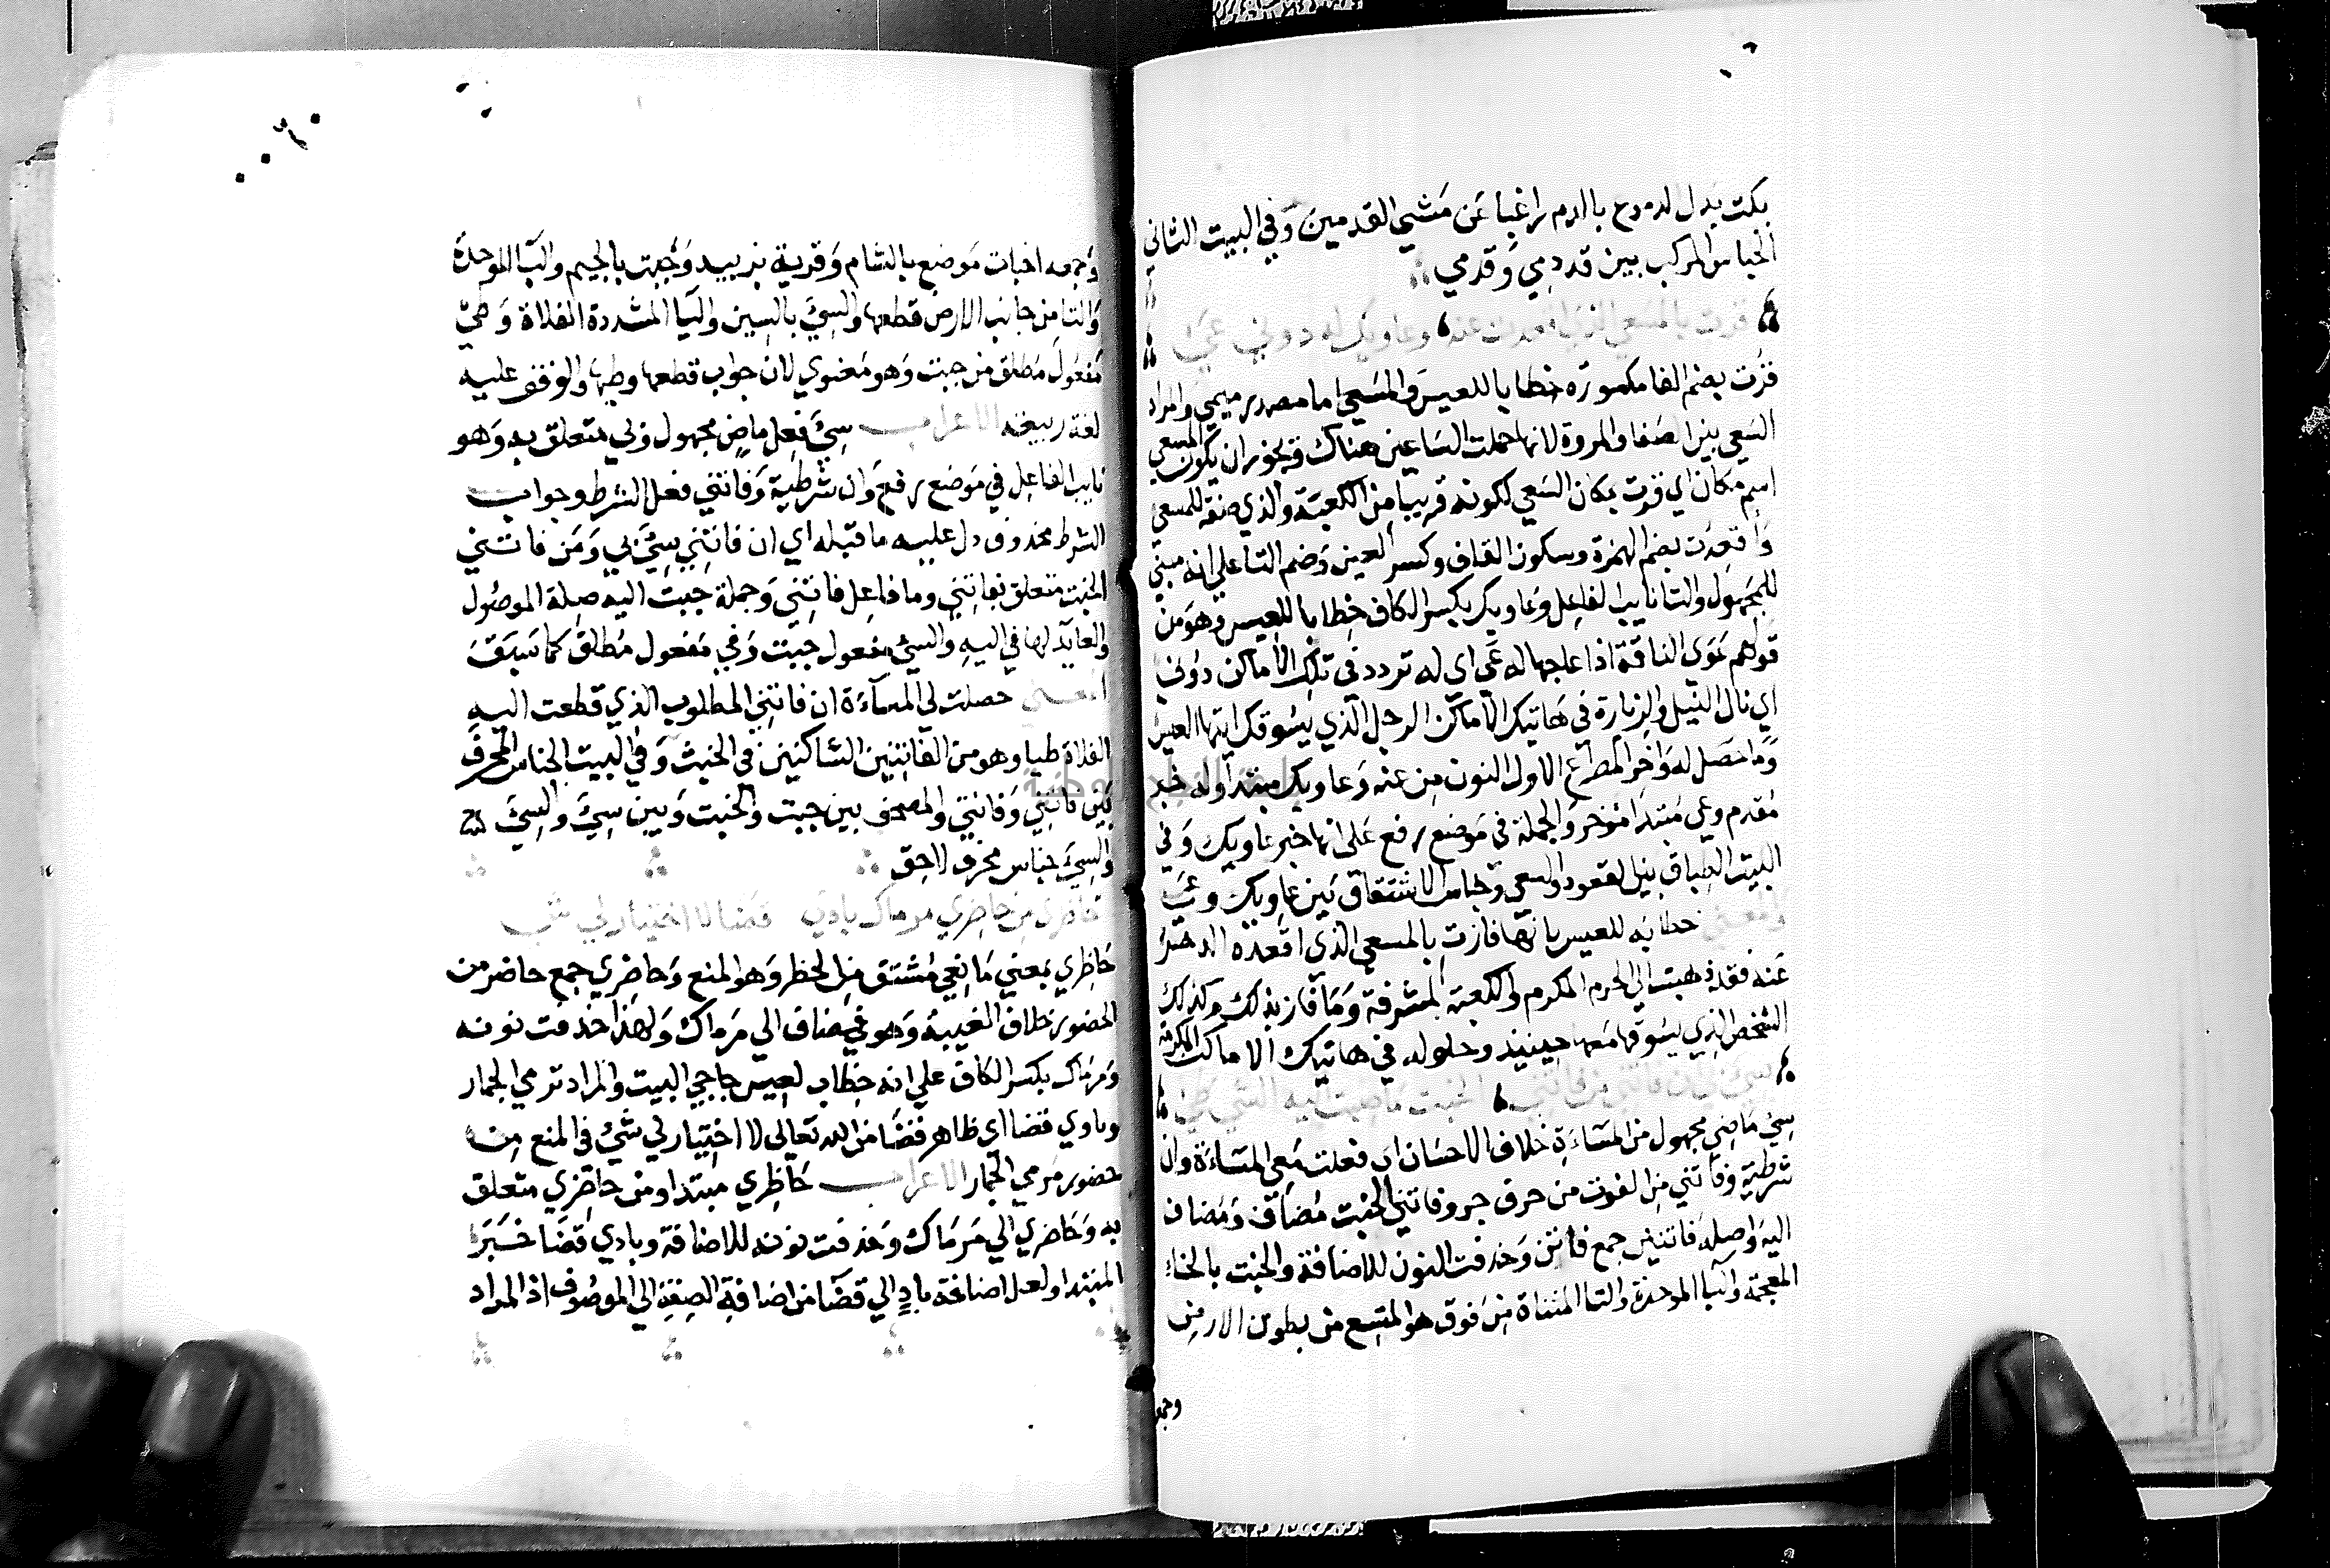 بكت بدل لدموع بالدم راغبا عن مشي القدمين وفي البيت الثاني
الجناس المركب بين قد دمي وقدمي
فزت بالمسعى الذي اقعدت عنه وعاويك له دوني عي
فزت بضم الفا مكسورة خطابا للعيس والمسعى اما مصدر ميمي والمراد
السعي بين الصفا والمروة لانها حملت الساعين هناك ويجوز ان يكون المسعى
اسم مكان اي فزت بمكان السعي لكونه قريبا من الكعبة والذي صفة للمسعى
واقعدت بضم الهمزة وسكون القاف وكسر العين وضم التا على انه مبني
للمجهول والتا نايب الفاعل وعاويك بكسر الكاف خطابا للعيس وهو من
قولهم عوى الناقة اذا عاجها له عي اى له تردد في تلك الاماكن دوني
اي نال النيل والزيارة في هاتيك الاماكن الرجل الذي يسوقك ايتها العيس
وما حصل له واخر المصراع الاول النون من عنه وعاويك مبتدا وله خبر
مقدم وعي مبتدا مؤخر والجملة في موضع رفع على انها خبر عاويك وفي
البيت الطباق بين القعود والسعي وجناس الاشتقاق بين عاويك وعي
والمعنى خطابه للعيس بانها فازت بالمسعى الذى اقعده الدهر
عنه فقد ذهبت الى الحرم المكرم والكعبة المشرفة وما فاز بذلك وكذلك
الشخص الذي يسوقها معها حينئذ وحلوله في هاتيك الاماكن المكرمة
سيء بي ان فاتني من فاتني الخبت ما جبت اليه السي طي
سيء ماضي مجهول من المساءة خلاف الاحسان اى فعلت معي المساءة وان
شرطية وفاتني من الفوت من حرف جر وفاتني الخبت مضاف ومضاف
اليه واصله فاتنين جمع فاتن وحذفت النون للاضافة والخبت بالخاء
المعجمة والبا الموحدة والتا المثناة من فوق هو المتسع من بطون الارض
وجمعه
وجمعه اخبات موضع بالشام وقرية بزبيد وجبت بالجيم والبا الموحدة
والتا من جاب الارض قطعها والسي بالسين واليا المشددة الفلاة وطي
مفعول مطلق من جبت وهو معنوي لان جواب قطعها وطيها والوقف عليه
لغة ربيعة الاعراب سيء فعل ماض مجهول وبي متعلق به وهو
نايب الفاعل في موضع رفع وان شرطية وفاتني فعل الشرط وجواب
الشرط محذوف دل عليه ما قبله اي ان فاتني سيء بي ومن فاتني
الخبت متعلق بفاتني وما فاعل فاتني وجملة جبت اليه صلة الموصول
والعايد الها في اليه والسي مفعول جبت وطي مفعول مطلق كما سبق
المعنى حصلت لي المساءة ان فاتني المطلوب الذي قطعت اليه
الفلاة طيا وهو من الفاتنين الساكنين في الخبت وفي البيت الجناس المحرف
بين فاتني وفاتني والمصحف بين جبت والخبت وبين سيء والسي
والسي جناس محرف لاحق
حاظري من حاضري مرماك بادي قضا لا اختيار لي شي
حاظري بمعنى مانعي مشتق من الحظر وهو المنع وحاضري جمع حاضر من
الحضور خلاف الغيبة وهو مضاف الى مرماك ولهذا حذفت نونه
ومرماك بكسر الكاف على انه خطاب لعيس حاجي البيت والمراد ترمي الجمار
وبادي قضا اي ظاهر قضا من الله تعالى لا اختيار لي شي في المنع من
حضور مرمي الجمار الاعراب حاظري مبتدا ومن حاضري متعلق
به وحاضري الى مرماك وحذفت نونه للاضافة وبادي قضا خبر
المبتدا ولعل اضافة باد الى قضا من اضافة الصفة الى الموصوف اذ المراد